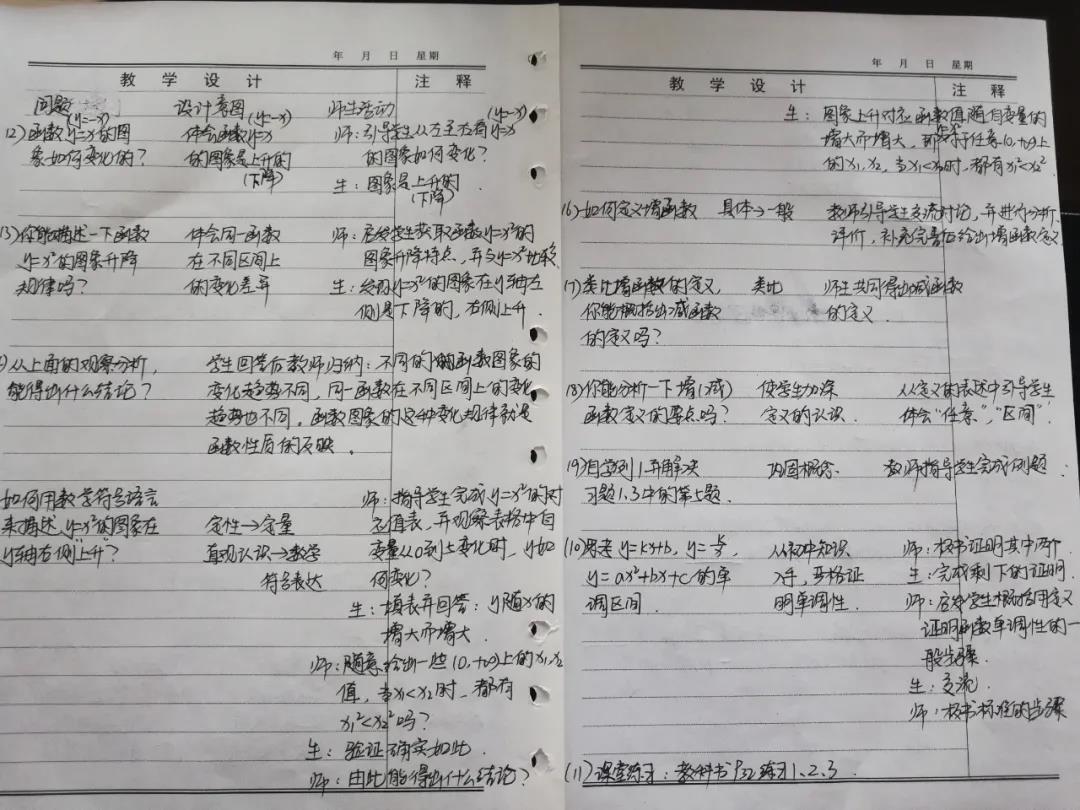 年 月 日 星期
教 学 设 计 注 释
问题 设计意图 师生活动
(y=-x) (y=-x) (y=-x)
(2)函数y=x的图 体会函数y=x 师:引导学生从左至右看y=x
象如何变化的? 的图象是上升的 的图象如何变化?
(下降) 生:图象是上升的
(下降)
(3)你能描述一下函数 体会同一函数 师:启发学生获取函数y=x²的
y=x²的图象升降 在不同区间上 图象升降特点,并与y=x比较
规律吗? 的变化差异 生:发现y=x²的图象在y轴左
侧是下降的,右侧上升.
)从上面的观察分析, 学生回答后教师归纳:不同的函数图象的
能得出什么结论? 变化趋势不同,同一函数在不同区间上的变化
趋势也不同,函数图象的这种变化规律就是
函数性质的反映。
如何用数学符号语言 师:指导学生完成y=x²的对
来描述y=x²的图象在 定性→定量 应值表,并观察表格中自
y轴右侧"上升"? 直观认识→数学 变量从0到5变化时,y如
符号表达 何变化?
生:填表并回答:y随x的
增大而增大.
师:随意给出一些(0,+∞)上的x₁,x₂
值,当x₁<x₂时,都有
x₁²<x₂²吗?
生:验证确实如此.
师:由此能得出什么结论?
年 月 日 星期
教 学 设 计 注 释
生:图象上升对应函数值随自变量的
增大而增大,即对于任意(0,+∞)上
的x₁,x₂,当x₁<x₂时,都有x₁²<x₂²
(6)如何定义增函数 具体→一般 教师引导学生交流讨论,并进行分析
评价,补充完善后给出增函数定义
(7)类比增函数的定义, 类比 师生共同得出减函数
你能概括出减函数 的定义.
的定义吗?
(8)你能分析一下增(减) 使学生加深 从定义的表述中引导学生
函数定义的要点吗? 定义的认识. 体会"任意","区间"
(9)自学例1并解决 巩固概念. 教师指导学生完成例题
习题1.3中的第1题.
(10)思考y=kx+b, y=k/x, 从初中知识 师:板书证明其中两个
y=ax²+bx+c的单 入手,严格证 生:完成剩下的证明.
调区间. 明单调性. 师:启发学生概括用定义
证明函数单调性的一
般步骤.
生:交流
师:板书标准的步骤
(11)课堂练习:教科书P32练习1、2、3.